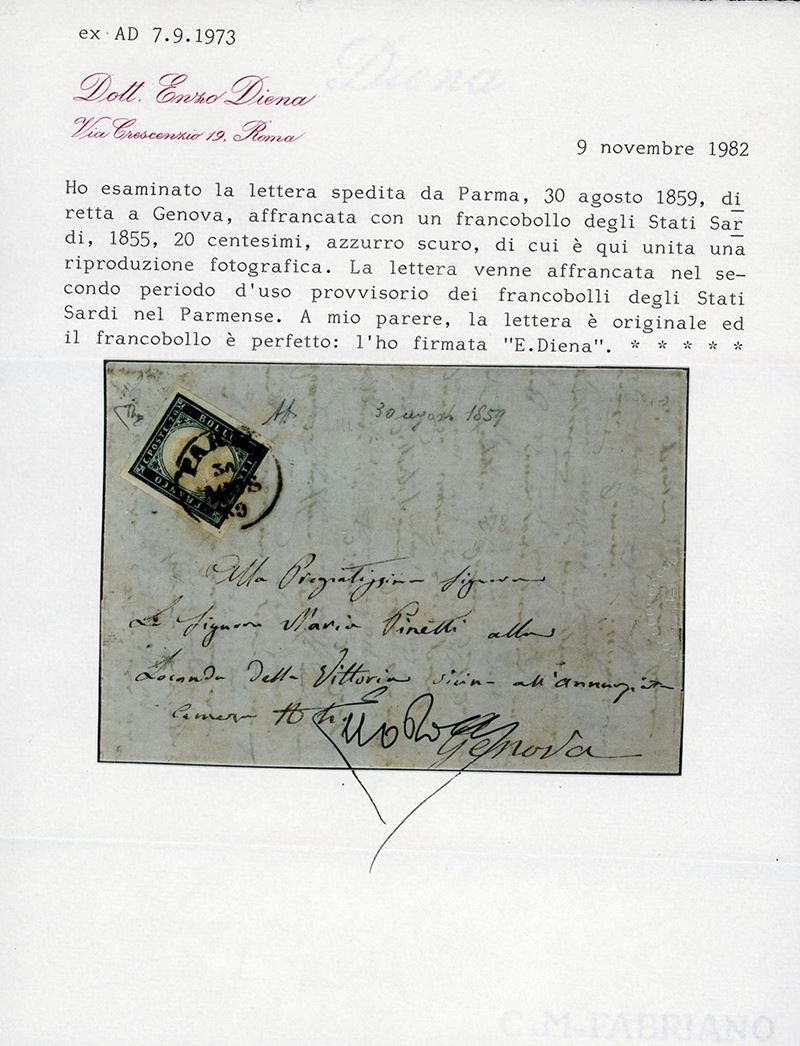 ex AD 7.9.1973
Dott. Enzo Diena
Via Crescenzio 19, Roma
Diena
9 novembre 1982
Ho esaminato la lettera spedita da Parma, 30 agosto 1859, di
retta a Genova, affrancata con un francobollo degli Stati Sar
di, 1855, 20 centesimi, azzurro scuro, di cui è qui unita una
riproduzione fotografica. La lettera venne affrancata nel se-
condo periodo d'uso provvisorio dei francobolli degli Stati
Sardi nel Parmense. A mio parere, la lettera è originale ed
il francobollo è perfetto: l'ho firmata "E.Diena". * * * * *
30 agosto 1859
C. POSTE 20
BOLLO
FRANCO
Alla Pregiatissima Signora
La Signora Maria Pinetti alla
Locanda della Vittoria vicin all'Annunziata
camera
Genova
C.M.FABRIANO